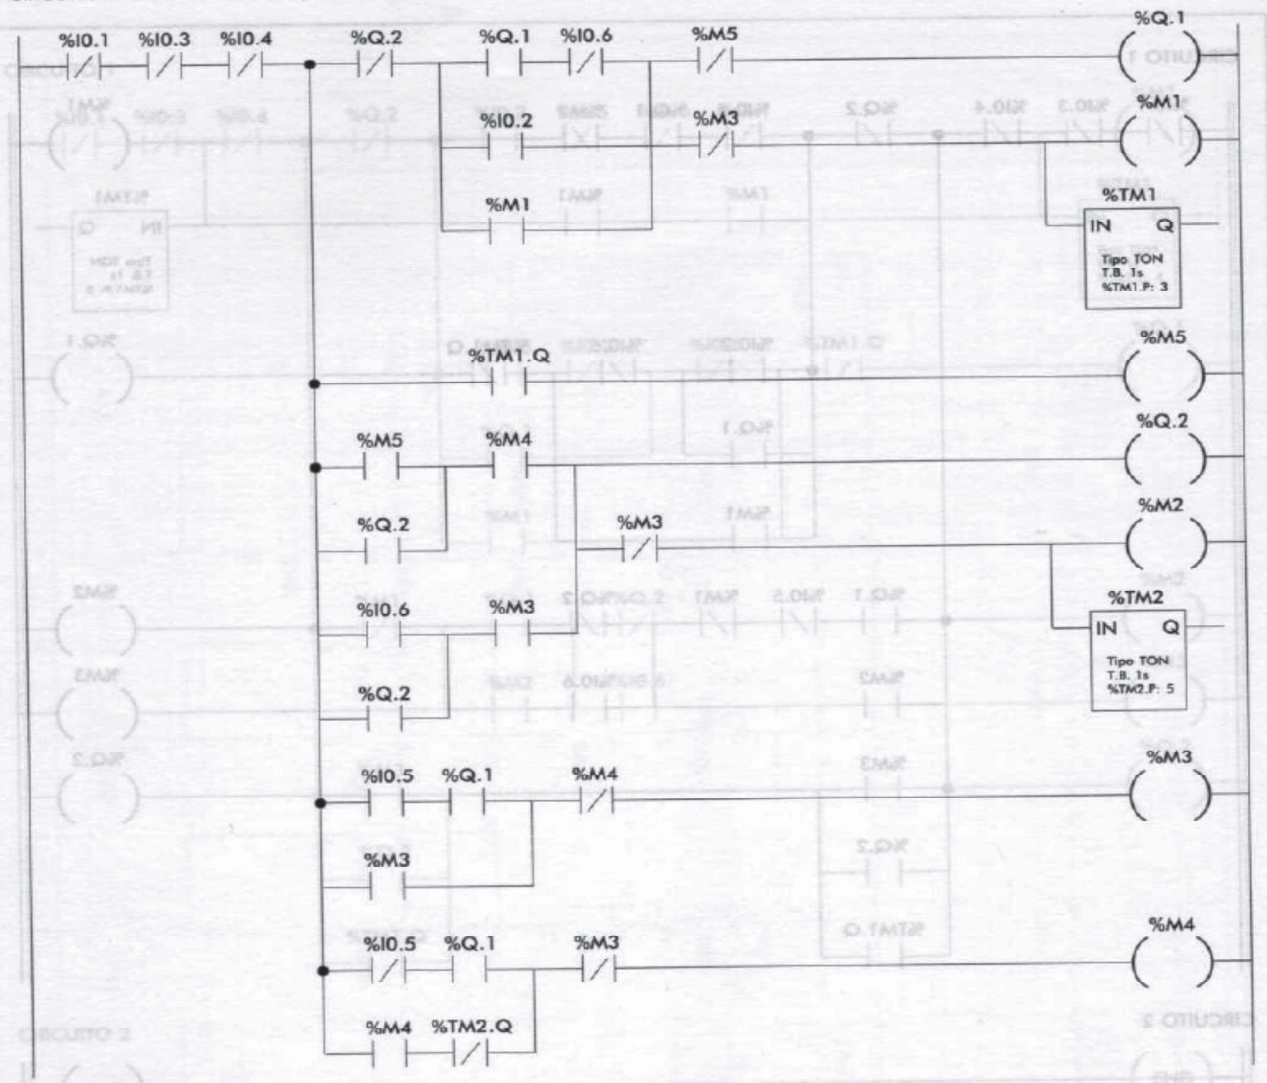 %I0.1 %I0.3 %I0.4 %Q.2 %Q.1 %I0.6 %M5 %Q.1
%I0.2 %M3 %M1
%M1 %TM1
IN Q
Tipo TON
T.B. 1s
%TM1.P: 3
%TM1.Q %M5
%M5 %M4 %Q.2
%Q.2 %M3 %M2
%I0.6 %M3 %TM2
IN Q
Tipo TON
T.B. 1s
%TM2.P: 5
%Q.2
%I0.5 %Q.1 %M4 %M3
%M3
%I0.5 %Q.1 %M3 %M4
%M4 %TM2.Q